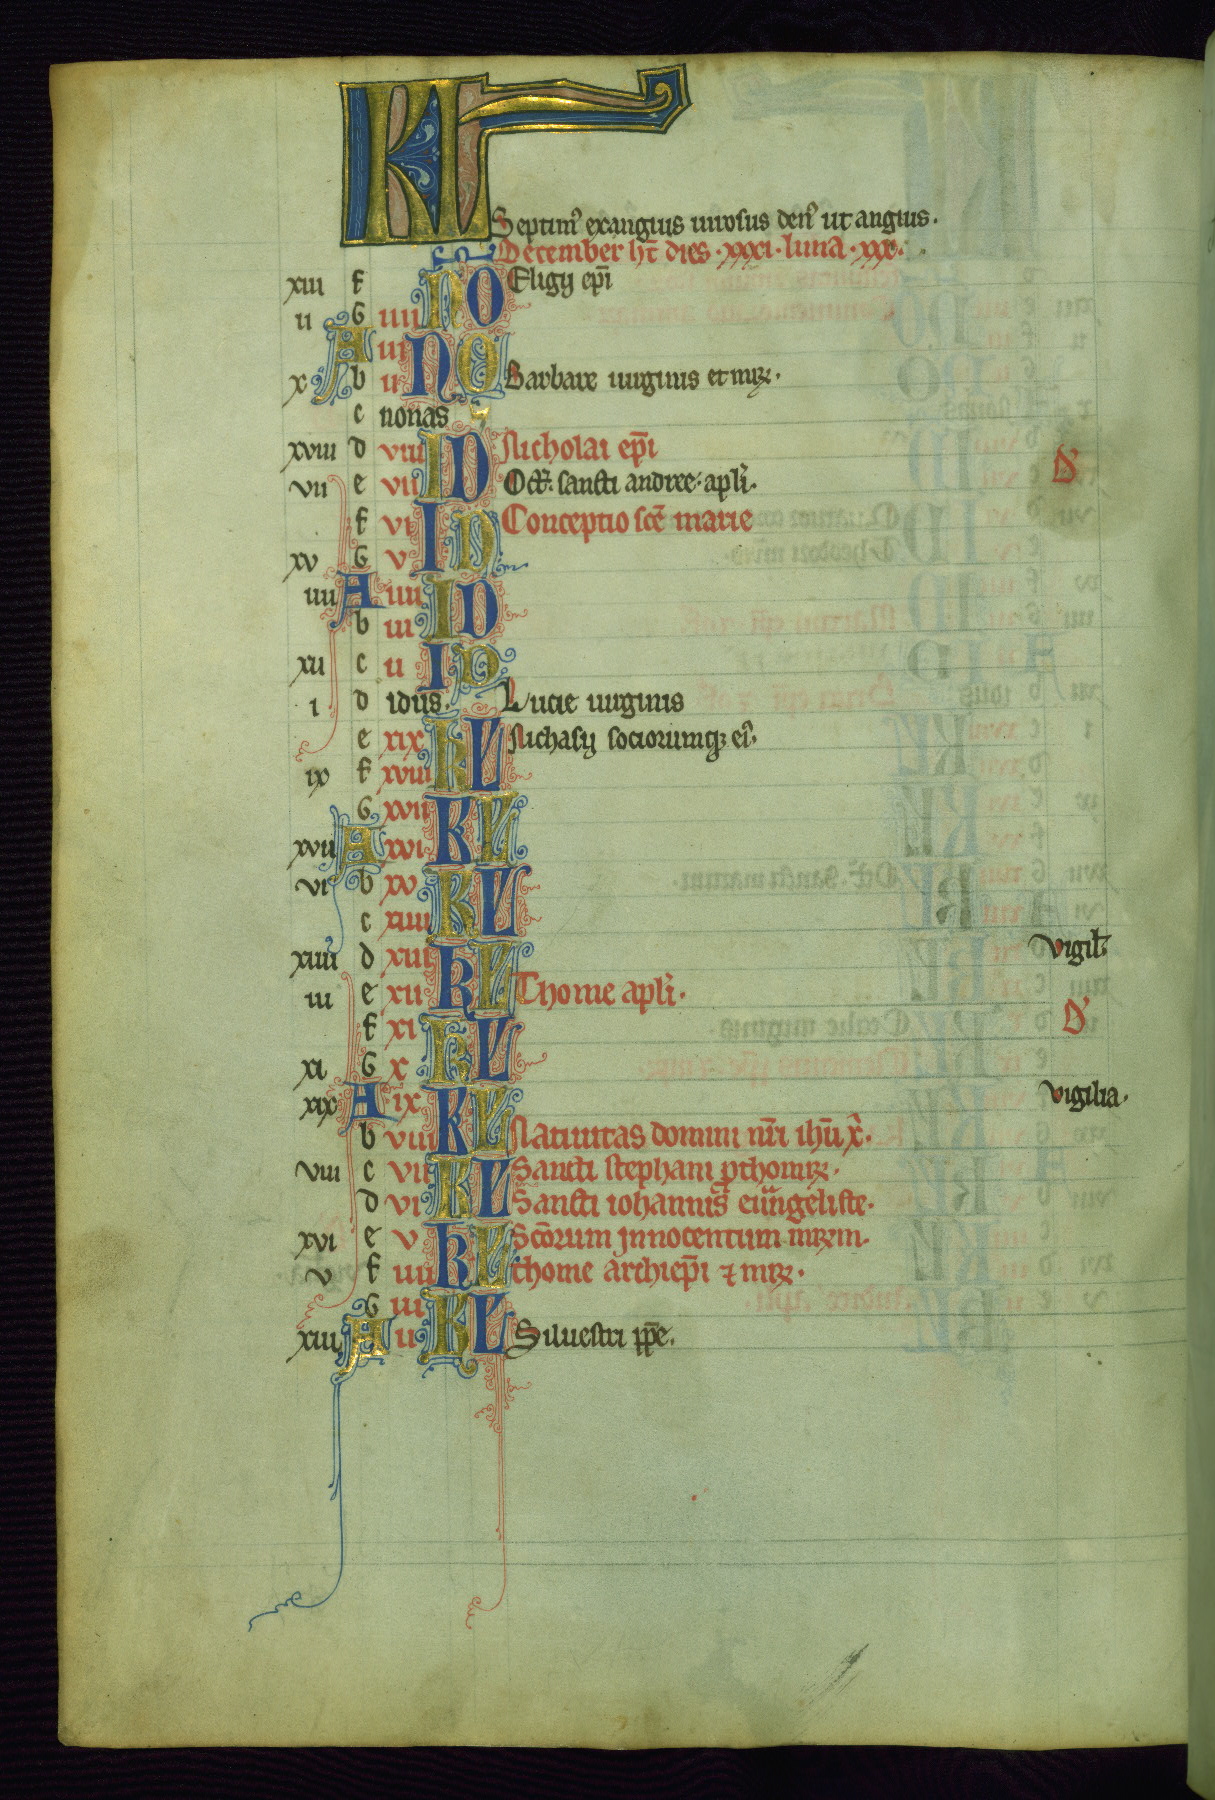 KL
Septim᾽ exanguis uirosus den᾽ ut anguis.
December ħt dies .xxxi. luna .xxx.
xiii f NO Eligii epī
ii G iiii
A iii NO
x b ii Barbare uirginis et mr̄
c nonas
xviii d viii ID Nicholai epī
vii e vii Oct̄. sancti andree apłi. D᾽
f vi ID Conceptio sc̄e marie
xv G v
iiii A iiii ID
b iii
xii c ii ID
i d idus. Lucie uirginis
e xix KL Nichasii sociorumq; ei᾽.
ix f xviii
G xvii KL
xvii A xvi
vi b xv KL
c xiiii
xiiii d xiii KL vigil᾽
iii e xii Thome apłi.
f xi KL D᾽
xi G x
xix A ix KL vigilia.
b viii Natiuitas domini nr̄i ihū x̄.
viii c vii KL Sancti stephani ꝓthomr̄.
d vi Sancti iohannis euungeliste.
xvi e v KL Sc̄orum innocentum mr̄m.
v f iiii thome archiep̄i ⁊ mr̄.
G iii KL
xiii A ii Siluestri pp̄e.